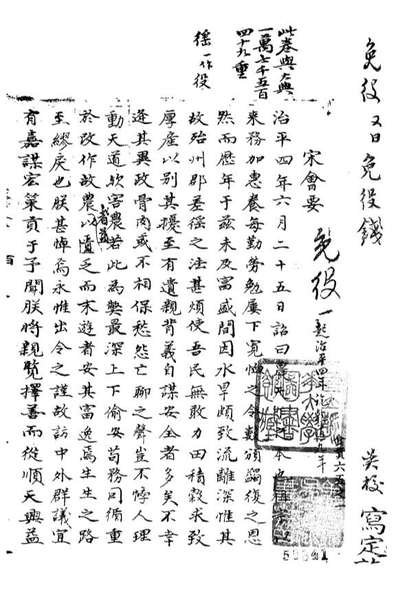 免役 又曰免役錢
吳校 寫定
此卷與大典
一萬七千五百
四十九重
徭一作役
宋會要
免役
起治平四年
治平四年六月二十五日詔曰農
來務加惠養每勤勞勉屢下寬恤之令數頒蠲復之恩
然而歷年于茲未及富盛間因水旱頗致流離深惟其
故殆州郡差徭之法甚煩使吾民無敢力田積穀求致
厚產以別其擾至有遺親背義自謀安全者多矣不幸
逢其異政骨肉或不相保愁怨亡聊之聲豈不悖人理
動天道歟害農若此為弊最深上下偷安苟務因循重
於改作故農以遺乏而末遊者安其富逸焉生生之路
至繆戾也朕甚悼焉永惟出令之謹故訪中外群議宜
有嘉謀宏策貢于予聞朕將親覽擇善而從順天興益